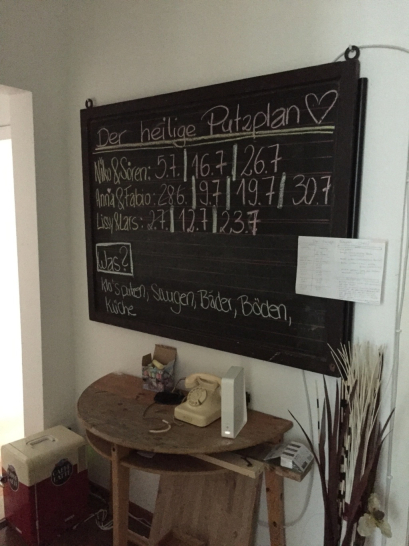 Der heilige Putzplan
Niko & Sören: 5.7. | 16.7 | 26.7
Anna & Fabio: 28.6. | 9.7 | 19.7 | 30.7
Lissy & Lars: 2.7. | 12.7 | 23.7
Was?
Klo's putzen, Saugen, Bäder, Böden,
Küche